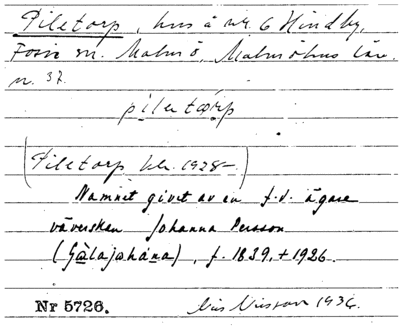 Piletorp, hus å nr. 6 Hindby,
Fosie sn. Malmö, Malmöhus län.
n. 37.
pilətår̥p
(Piletorp kr. 1928–)
Namnet givet av en f.d. ägare
väverskan Johanna Persson
(Gàlajåhána), f. 1839, + 1926.
Nr 5726. Nils Nilsson 1936.